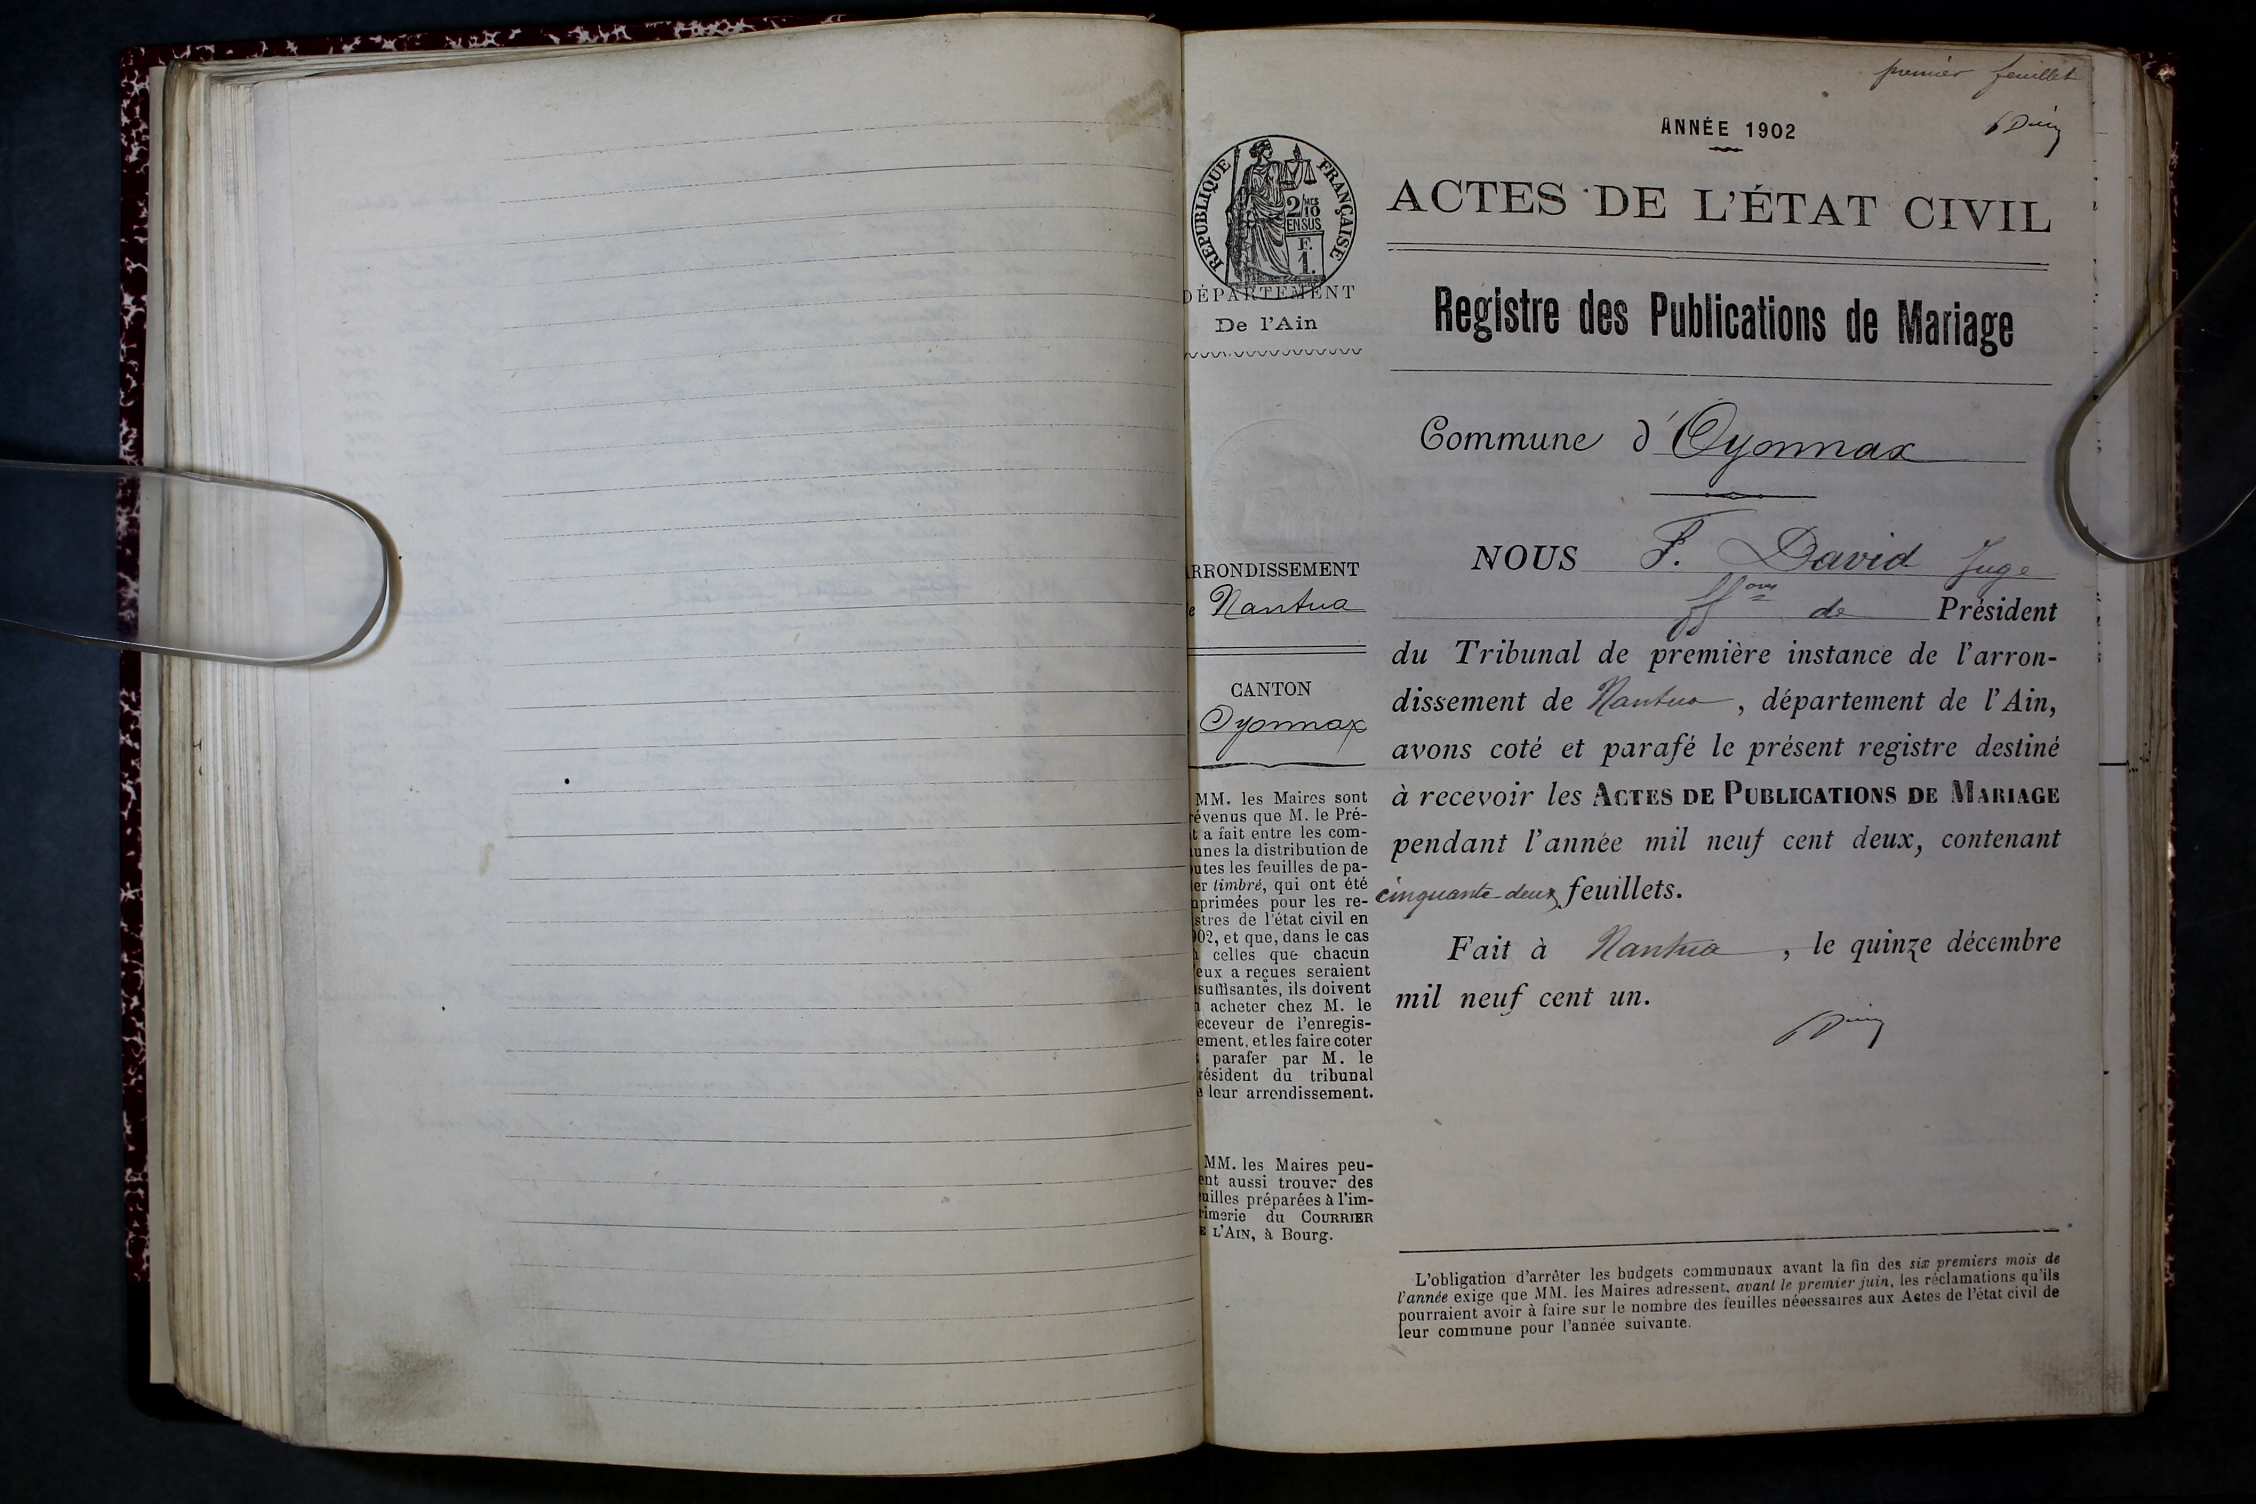 premier feuillet
ANNÉE 1902
RÉPUBLIQUE FRANÇAISE
2/10
EN SUS
F.
1.
DÉPARTEMENT
De l'Ain
ARRONDISSEMENT
e Nantua
CANTON
Oyonnax
MM. les Maires sont
révenus que M. le Pré-
t a fait entre les com-
unes la distribution de
utes les feuilles de pa-
er timbré, qui ont été
primées pour les re-
stres de l'état civil en
02, et que, dans le cas
celles que chacun
eux a reçues seraient
suffisantes, ils doivent
acheter chez M. le
eceveur de l'enregis-
ement, et les faire coter
parafer par M. le
résident du tribunal
e leur arrondissement.
MM. les Maires peu-
ent aussi trouver des
uilles préparées à l'im-
rimerie du COURRIER
E L'AIN, à Bourg.
ACTES DE L'ÉTAT CIVIL
Registre des Publications de Mariage
Commune d'Oyonnax
NOUS F. David Juge
ff ons de Président
du Tribunal de première instance de l'arron-
dissement de Nantua, département de l'Ain,
avons coté et parafé le présent registre destiné
à recevoir les ACTES DE PUBLICATIONS DE MARIAGE
pendant l'année mil neuf cent deux, contenant
cinquante-deux feuillets.
Fait à Nantua, le quinze décembre
mil neuf cent un.
L'obligation d'arrêter les budgets communaux avant la fin des six premiers mois de
l'année exige que MM. les Maires adressent, avant le premier juin, les réclamations qu'ils
pourraient avoir à faire sur le nombre des feuilles nécessaires aux Actes de l'état civil de
leur commune pour l'année suivante.